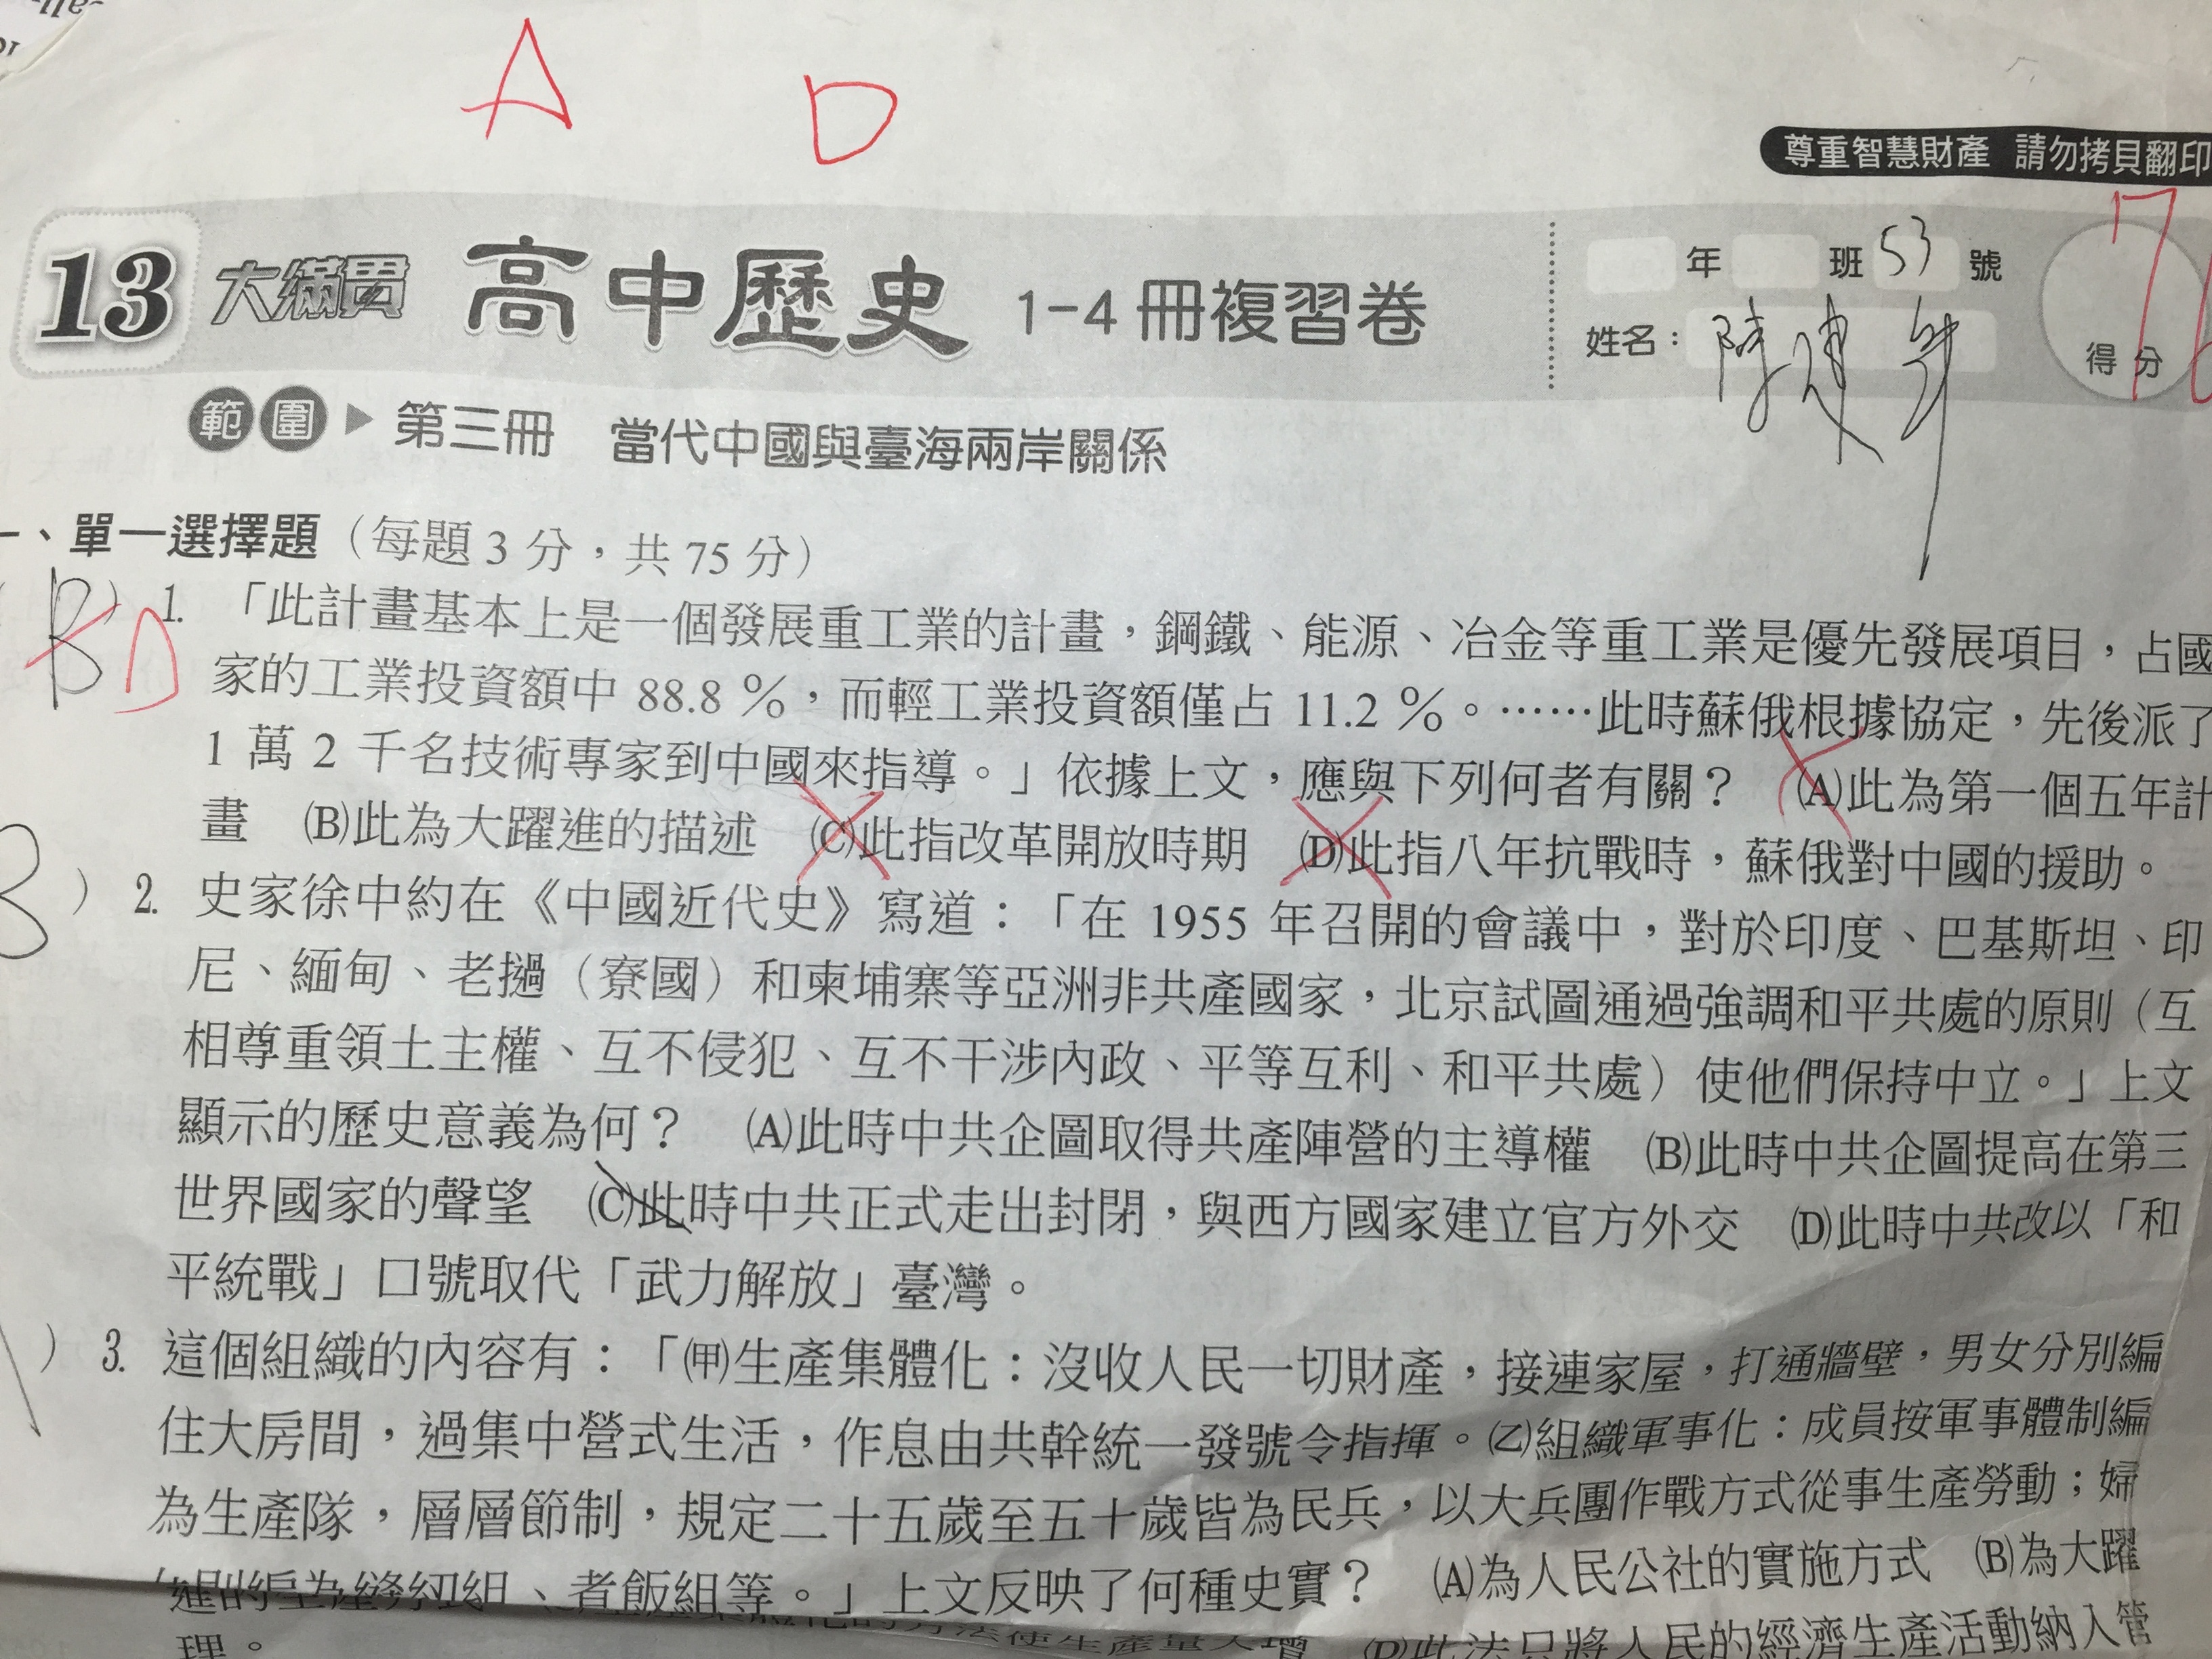 A D
尊重智慧財產 請勿拷貝翻印
13 大滿貫 高中歷史 1-4 冊複習卷
年 班 53 號
姓名：
得分
76
範圍 ▶ 第三冊 當代中國與臺海兩岸關係
一、單一選擇題（每題 3 分，共 75 分）
B D ) 1. 「此計畫基本上是一個發展重工業的計畫，鋼鐵、能源、冶金等重工業是優先發展項目，占國
家的工業投資額中 88.8 %，而輕工業投資額僅占 11.2 %。……此時蘇俄根據協定，先後派了
1 萬 2 千名技術專家到中國來指導。」依據上文，應與下列何者有關？ (A)此為第一個五年計
畫 (B)此為大躍進的描述 (C)此指改革開放時期 (D)此指八年抗戰時，蘇俄對中國的援助。
B ) 2. 史家徐中約在《中國近代史》寫道：「在 1955 年召開的會議中，對於印度、巴基斯坦、印
尼、緬甸、老撾（寮國）和柬埔寨等亞洲非共產國家，北京試圖通過強調和平共處的原則（互
相尊重領土主權、互不侵犯、互不干涉內政、平等互利、和平共處）使他們保持中立。」上文
顯示的歷史意義為何？ (A)此時中共企圖取得共產陣營的主導權 (B)此時中共企圖提高在第三
世界國家的聲望 (C)此時中共正式走出封閉，與西方國家建立官方外交 (D)此時中共改以「和
平統戰」口號取代「武力解放」臺灣。
) 3. 這個組織的內容有：「(甲)生產集體化：沒收人民一切財產，接連家屋，打通牆壁，男女分別編
住大房間，過集中營式生活，作息由共幹統一發號令指揮。(乙)組織軍事化：成員按軍事體制編
為生產隊，層層節制，規定二十五歲至五十歲皆為民兵，以大兵團作戰方式從事生產勞動；婦
縫紉組、煮飯組等。」上文反映了何種史實？ (A)為人民公社的實施方式 (B)為大躍
的方法使生產量大增 (D)此法只將人民的經濟生產活動納入管
理。